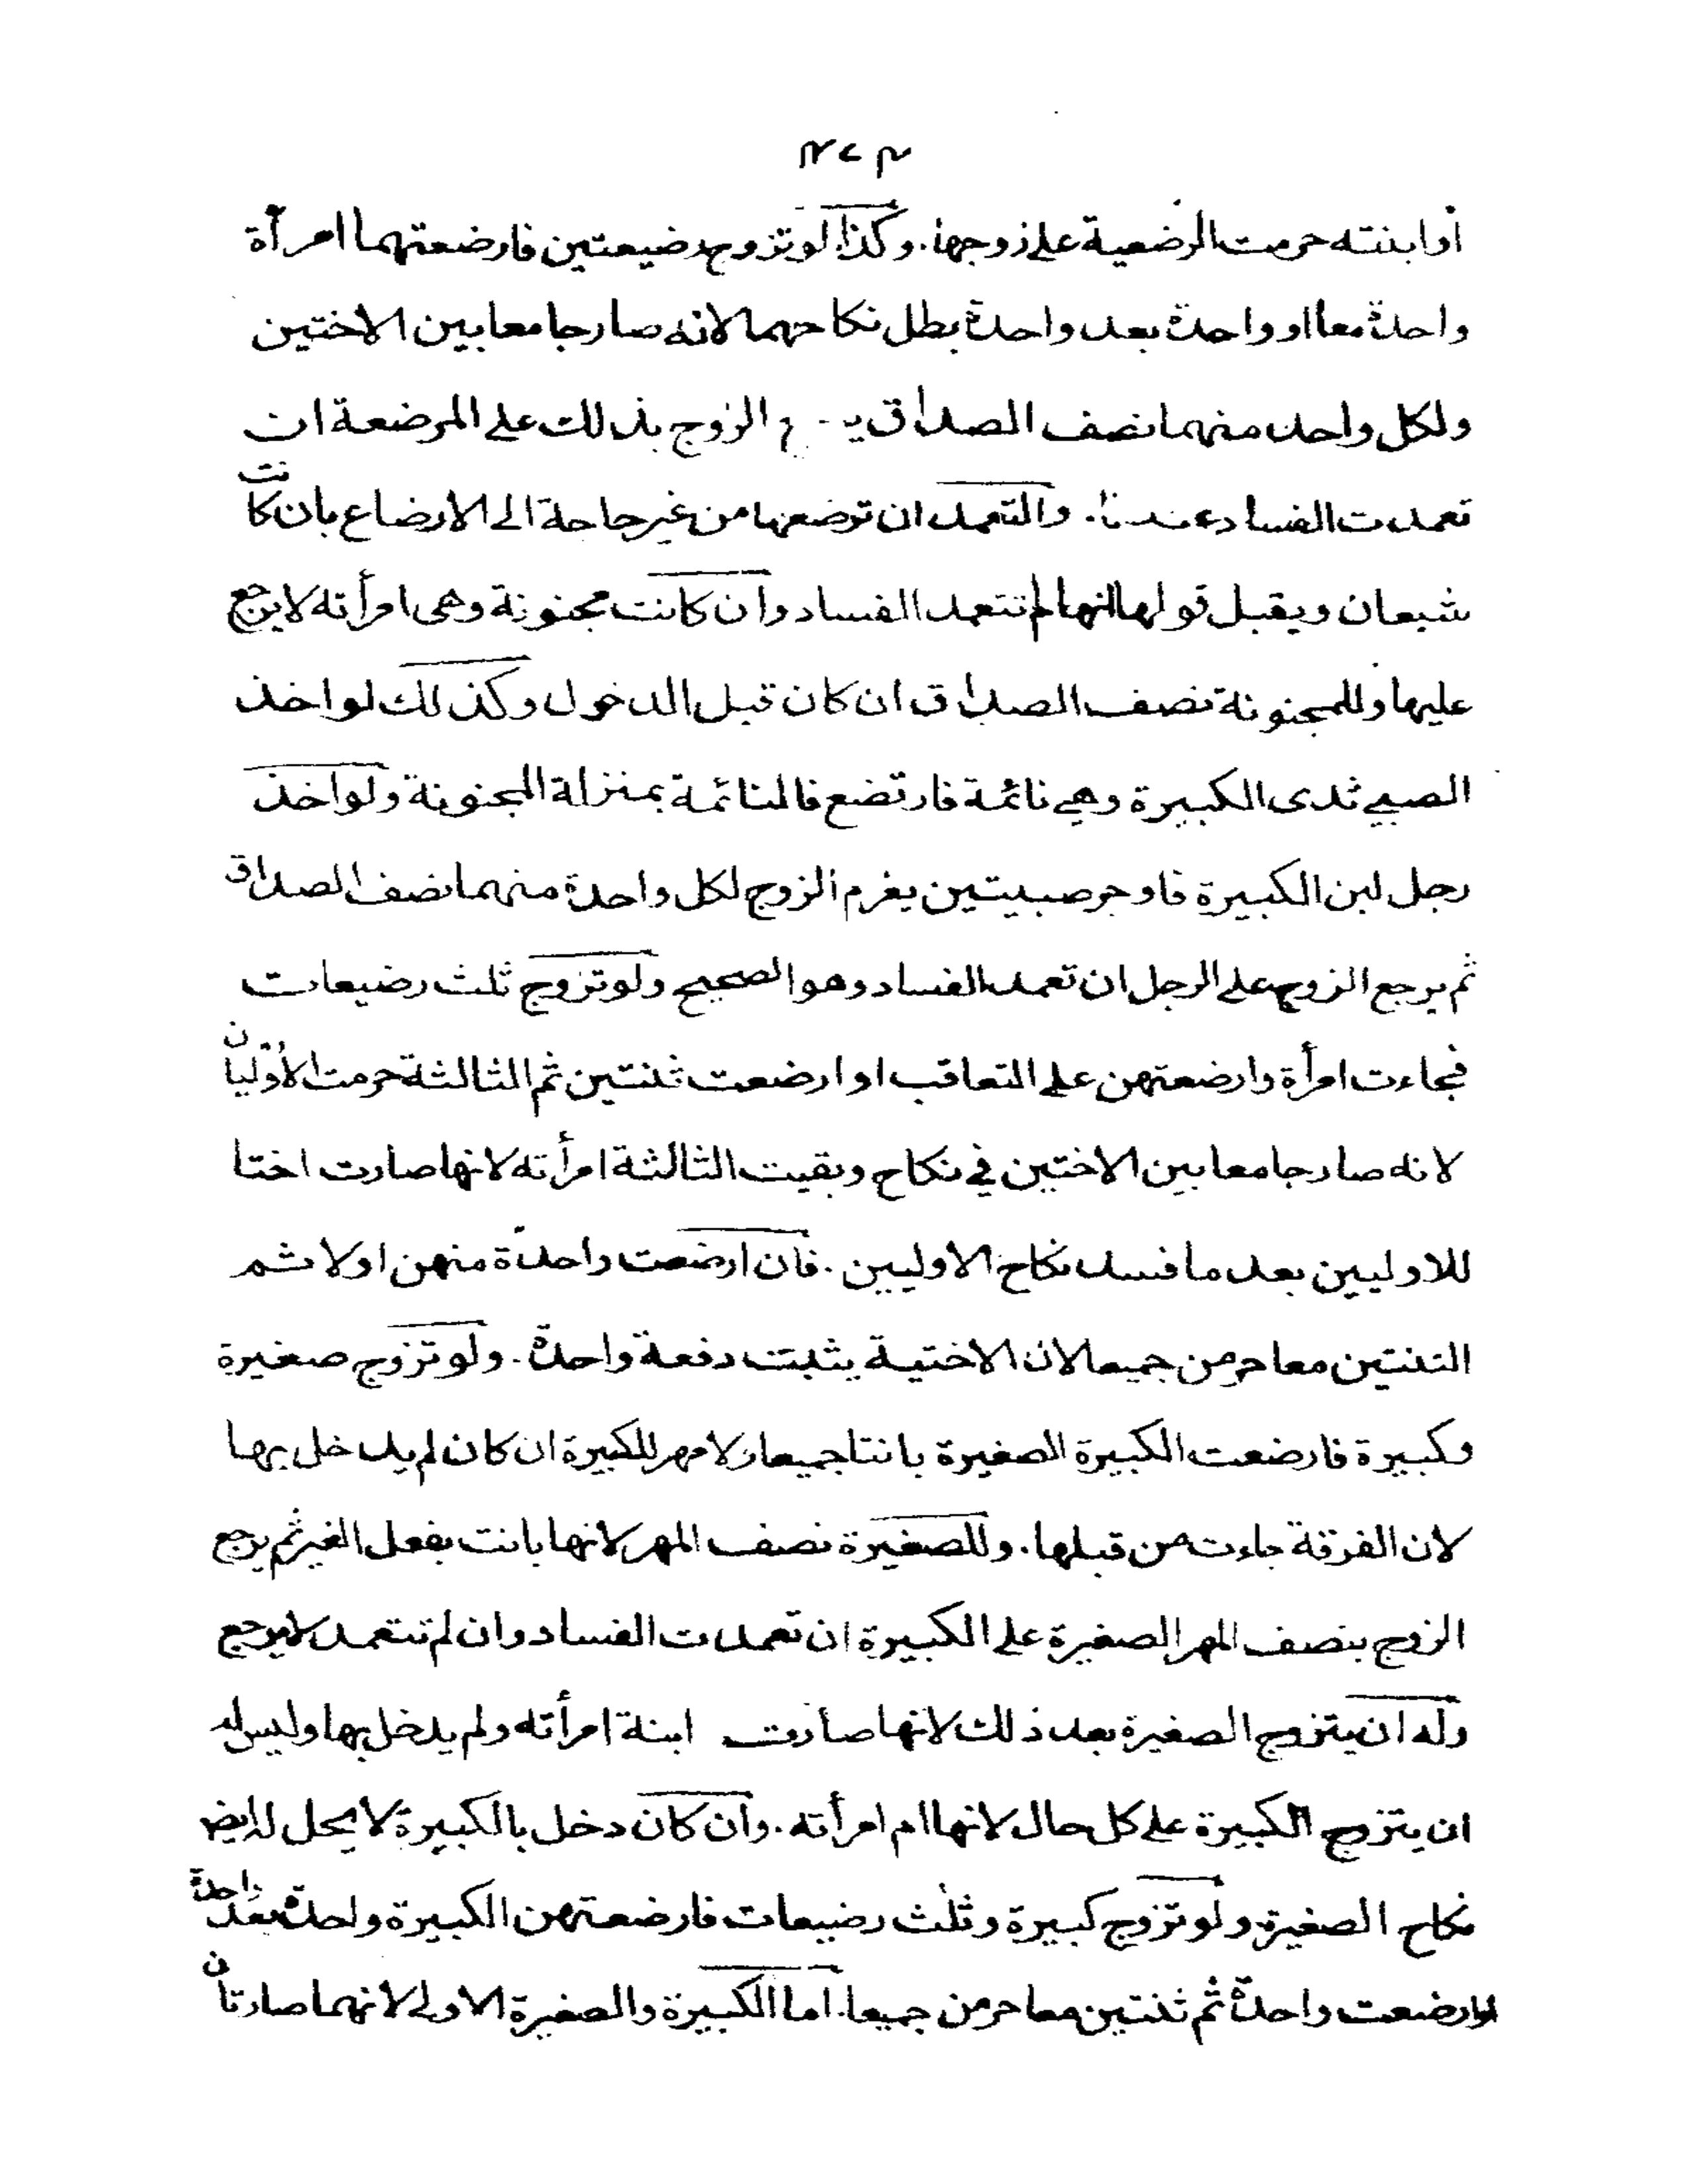 أو ابنته حرمت الرضعية على زوجها. وكذا لو تزوج رضيعتين فارضعتهما امرأة
واحدة معا او واحدة بعد واحدة بطل نكاحهما لانه صار جامعا بين الاختين
ولكل واحد منهما نصف الصداق الزوج بذلك على المرضعة ان
تعمدت الفساد عندنا. والتعمد ان ترضعها من غير حاجة الى الارضاع بان كانت
شبعان ويقبل قولها انها لم تتعمد الفساد وان كانت مجنونة وهى امرأته لا يرجع
عليها وللمجنونة نصف الصداق ان كان قبل الدخول وكذلك لو اخذ
الصبي ثدى الكبيرة وهي نائمة فارتضع فالنائمة بمنزلة المجنونة ولو اخذ
رجل لبن الكبيرة فاوجر صبيتين يغرم الزوج لكل واحدة منهما نصف الصداق
ثم يرجع الزوج على الرجل ان تعمد الفساد وهو الصحيح ولو تزوج ثلث رضيعات
فجاءت امرأة وارضعتهن على التعاقب او ارضعت ثنتين ثم الثالثة حرمت الأوليان
لانه صار جامعا بين الاختين في نكاح وبقيت الثالثة امرأته لانها صارت اختا
للاوليين بعد ما فسد نكاح الاوليين. فان ارضعت واحدة منهن اولا ثم
الثنتين معا حرمن جميعا لان الاختية يثبت دفعة واحدة. ولو تزوج صغيرة
وكبيرة فارضعت الكبيرة الصغيرة بانتا جميعا ولا مهر للكبيرة ان كان لم يدخل بها
لان الفرقة جاءت من قبلها. وللصغيرة نصف المهر لانها بانت بفعل الغير ثم يرجع
الزوج بنصف المهر الصغيرة على الكبيرة ان تعمدت الفساد وان لم تتعمد لا يرجع
وله ان يتزوج الصغيرة بعد ذلك لانها صارت ابنة امرأته ولم يدخل بها وليس له
ان يتزوج الكبيرة على كل حال لانها ام امرأته. وان كان دخل بالكبيرة لا يحل له ايض
نكاح الصغيرة ولو تزوج كبيرة وثلث رضيعات فارضعتهن الكبيرة واحدة بعد واحدة
او ارضعت واحدة ثم ثنتين معا حرمن جميعا. اما الكبيرة والصغيرة الاولى لانهما صارتا